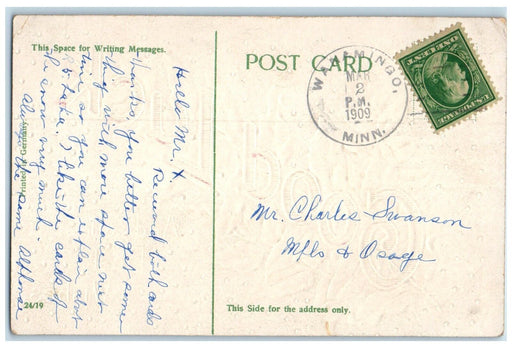 This Space for Writing Messages.
POST CARD
WANAMINGO,
MAR
2
P.M.
1909
MINN.
Hello Mr. X.
Received both cards
thanks, you better get some
thing with more space next
time so you can explain about
I like the cards of
the snow very much.
Always the same Alphonse
Mr. Charles Swanson
Mpls & Osage
Printed in Germany
24/19
This Side for the address only.